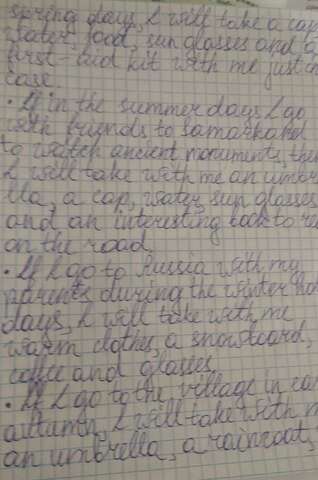 spring days, I will take a cap
water, food, sun glasses and a
first-aid kit with me just in
case.
• If in the summer days I go
with friends to Samarkand
to watch ancient monuments, then
I will take with me an umbre
lla, a cap, water, sun glasses
and an interesting book to re
on the road.
• If I go to Russia with my
parents during the winter holi
days, I will take with me
warm clothes, a snowboard,
coffee and glasses.
• If I go to the village in
autumn, I will take with m
an umbrella, a raincoat,